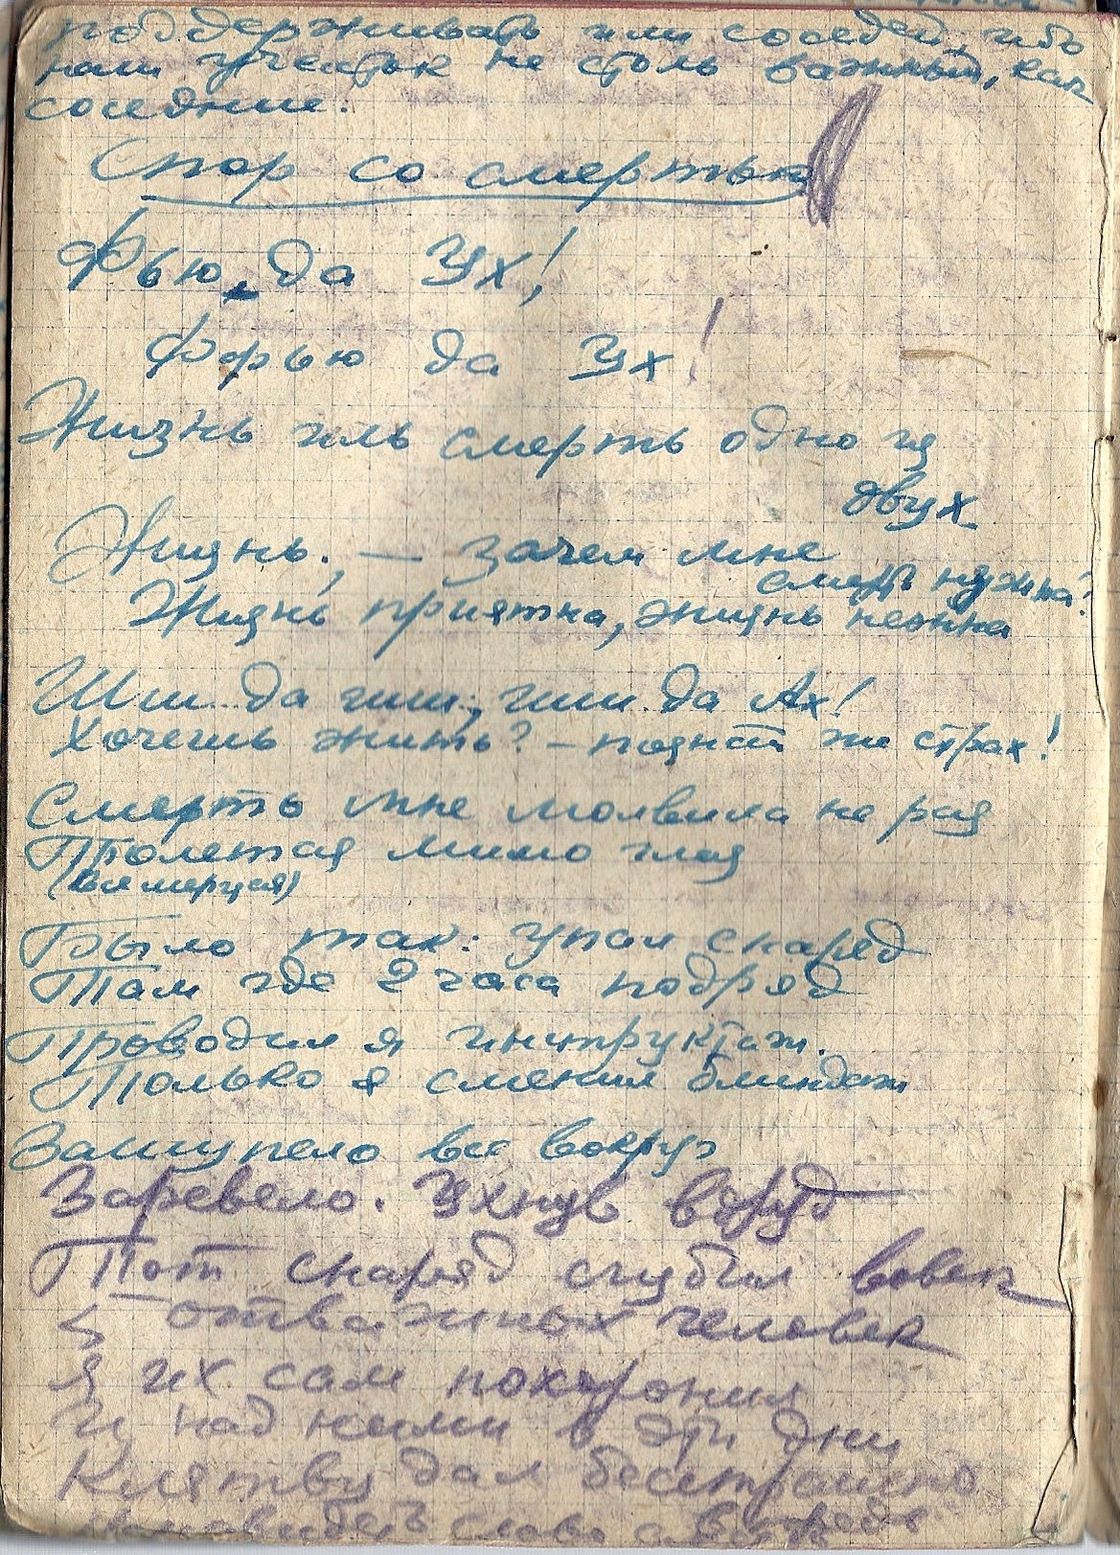 поддерживать или соседей, ибо
наш участок не столь важный, как
соседние.
Спор со смертью
Фью, да Ух!
Ффью да Ух!
Жизнь иль смерть одно из
двух
Жизнь, — зачем мне
смерть нужна?
Жизнь приятна, жизнь нежна
Шш.. да шш.., шш. да Ах!
Хочешь жить? — познай же страх!
Смерть мне молвила не раз
Пролетая мимо глаз
(все мерцая)
Было так: упал снаряд
Там где 2 часа подряд
Проводил я инструктаж.
Только я сменил блиндаж
Зашипело все вокруг
Заревело. Ухнув вдруг
Тот снаряд сгубил вовек
5 отважных человек
Я их сам похоронил
И над ними в эти дни
Клятву дал бесстрашно
слово